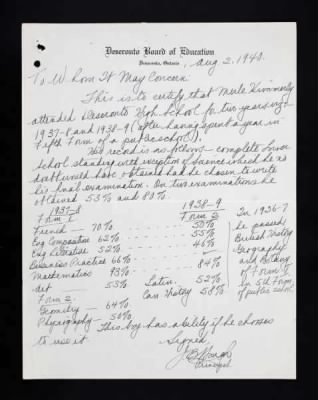 Deseronto Board of Education
Deseronto, Ontario, Aug 2, 1940.
To Whom It May Concern
This is to certify that Merle Kimmerly
attended Deseronto High School for two years, viz
1937-8 and 1938-9 (after having spent a year in
Fifth Form of a public school).
His record is as follows - complete lower
school standing with exception of Science which he no
doubt would have obtained had he chosen to write
his final examination. On two examinations he
obtained 53% and 80%.
1937-8 1938-9 In 1936-7
Form 1 Form 2 he passed
French - 70% 50% British History
Eng Composition 62% 55% Geography
Eng Literature 52% 46% and Botany
Business Practice 66% 84% of Form I
Mathematics 93% in 5th Form
Art 53% Latin. 52% of public school.
Form 2. Can History 58%
Geometry - 64%
Physiography - 50%
This boy has ability if he chooses
to use it.
Signed,
Principal